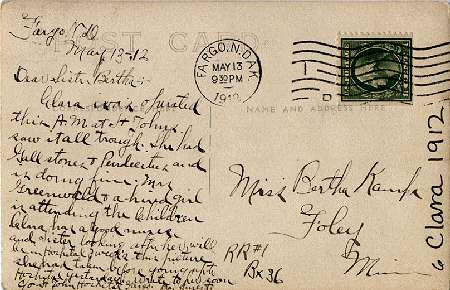 Fargo, N.D.
May-13-12
POST CARD
FARGO, N. DAK.
MAY 13
930 PM
1912
NAME AND ADDRESS HERE
Dear Sister Bertha;
Clara was operated
this A.M. at St Johns
saw it all trough. She had
Gall stones & and
is doing fine; Mrs
Greenwold & a hired girl
is attending the Children
Clara has a good nurse
and sister looking after her, will
be in hospital 3 weeks this picture
she had taken before going to the
Hospital yesterday. Write to her soon
St John Hospital Fargo
Miss Bertha Kamps
Foley
Minn
RR#1
Bx 36
Clara 1912